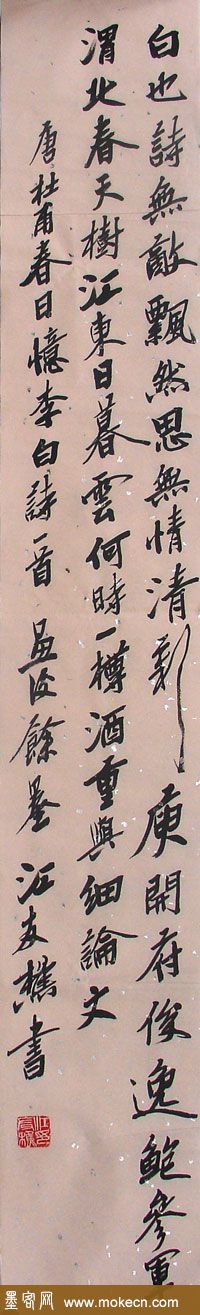 白也詩無敵飄然思無情清新庾開府俊逸鮑參軍
渭北春天樹江東日暮雲何時一樽酒重與細論文
唐杜甫春日憶李白詩一首畫後餘墨江友樵書
墨客网
www.mokecn.com